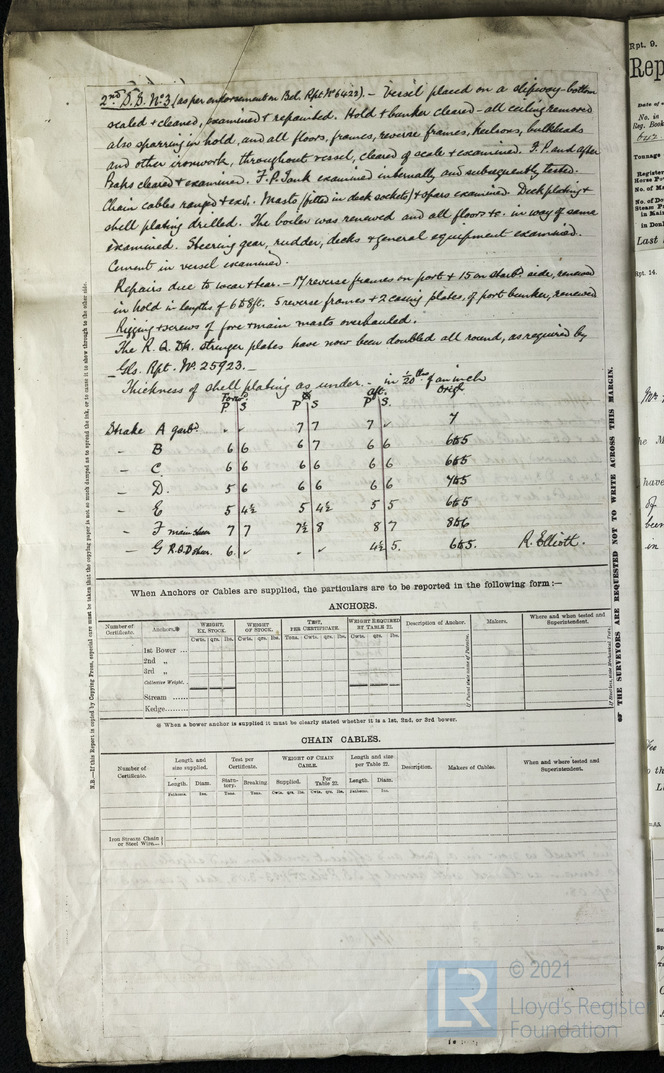 2nd S.S. No 3 (as per endorsement on Bel. Rpt No 6422). – Vessel placed on a slipway – bottom
scaled & cleaned, examined & repainted. Hold & bunker cleared – all ceiling removed
also sparring in hold, and all floors, frames, reverse frames, keelsons, bulkheads
and other ironwork, throughout vessel, cleared of scale & examined. F.P. and after
Peaks cleared & examined. F.P. Tank examined internally and subsequently tested.
Chain cables ranged & exd. Masts (fitted in deck sockets) & spars examined. Deck plating &
shell plating drilled. The boiler was renewed and all floors &c. in way of same
examined. Steering gear, rudder, decks & general equipment examined.
Cement in vessel examined.
Repairs due to wear & tear. – 17 reverse frames on port & 15 on starbd side, renewed
in hold in lengths of 6 & 8 ft. 5 reverse frames & 2 casing plates, of port bunker, renewed
Rigging & screws of fore & main masts overhauled.
The R. Q. Dk. stringer plates have now been doubled all round, as required by
Gls. Rpt. No. 25923. –
Thickness of shell plating as under. – in 1/20ths of an inch
Forwd. aft. Orig
P S P S P S
Strake A garbd. 7 7 7 ✓ 7
– B 6 6 6 7 6 6 6 & 5
– C 6 6 6 6 6 6 6 & 5
– D. 5 6 6 6 6 6 7 & 5
– E 5 4½ 5 4½ 5 5 6 & 5
– F main sheer 7 7 7½ 8 8 7 8 & 6
– G R.Q.D sheer. 6. ✓ 4½ 5. 6 & 5. R. Elliott.
When Anchors or Cables are supplied, the particulars are to be reported in the following form :—
ANCHORS.
Number of Certificate. Anchors.* WEIGHT, EX. STOCK. WEIGHT OF STOCK. TEST, PER CERTIFICATE. WEIGHT REQUIRED BY TABLE 22. Description of Anchor. Makers. Where and when tested and Superintendent.
Cwts. qrs. lbs. Cwts. qrs. lbs. Tons. Cwts. qrs. lbs. Cwts. qrs. lbs.
1st Bower ...
2nd „
3rd „
Collective Weight.
Stream ......
Kedge........
* When a bower anchor is supplied it must be clearly stated whether it is a 1st, 2nd, or 3rd bower.
CHAIN CABLES.
Number of Certificate. Length and size supplied. Test per Certificate. WEIGHT OF CHAIN CABLE. Length and size per Table 22. Description. Makers of Cables. When and where tested and Superintendent.
Length. Diam. Statutory. Breaking Supplied. Per Table 22. Length. Diam.
Fathoms. Ins. Tons. Tons. Cwts. qrs. lbs. Cwts. qrs. lbs. Fathoms. Ins.
Iron Stream Chain or Steel Wire...
N.B.—If this Report is copied by Copying Press, especial care must be taken that the copying paper is not so much damped as to spread the ink, or to cause it to show through to the other side.
THE SURVEYORS ARE REQUESTED NOT TO WRITE ACROSS THIS MARGIN.
Rpt. 9.
Rep
Date of
No. in
Reg. Book
Tonnage
Register
Horse Po
No. of M
No. of Do
Steam P
in Mai
in Don
Last
Rpt. 14.
have
been
in
LR
© 2021
Lloyd's Register
Foundation